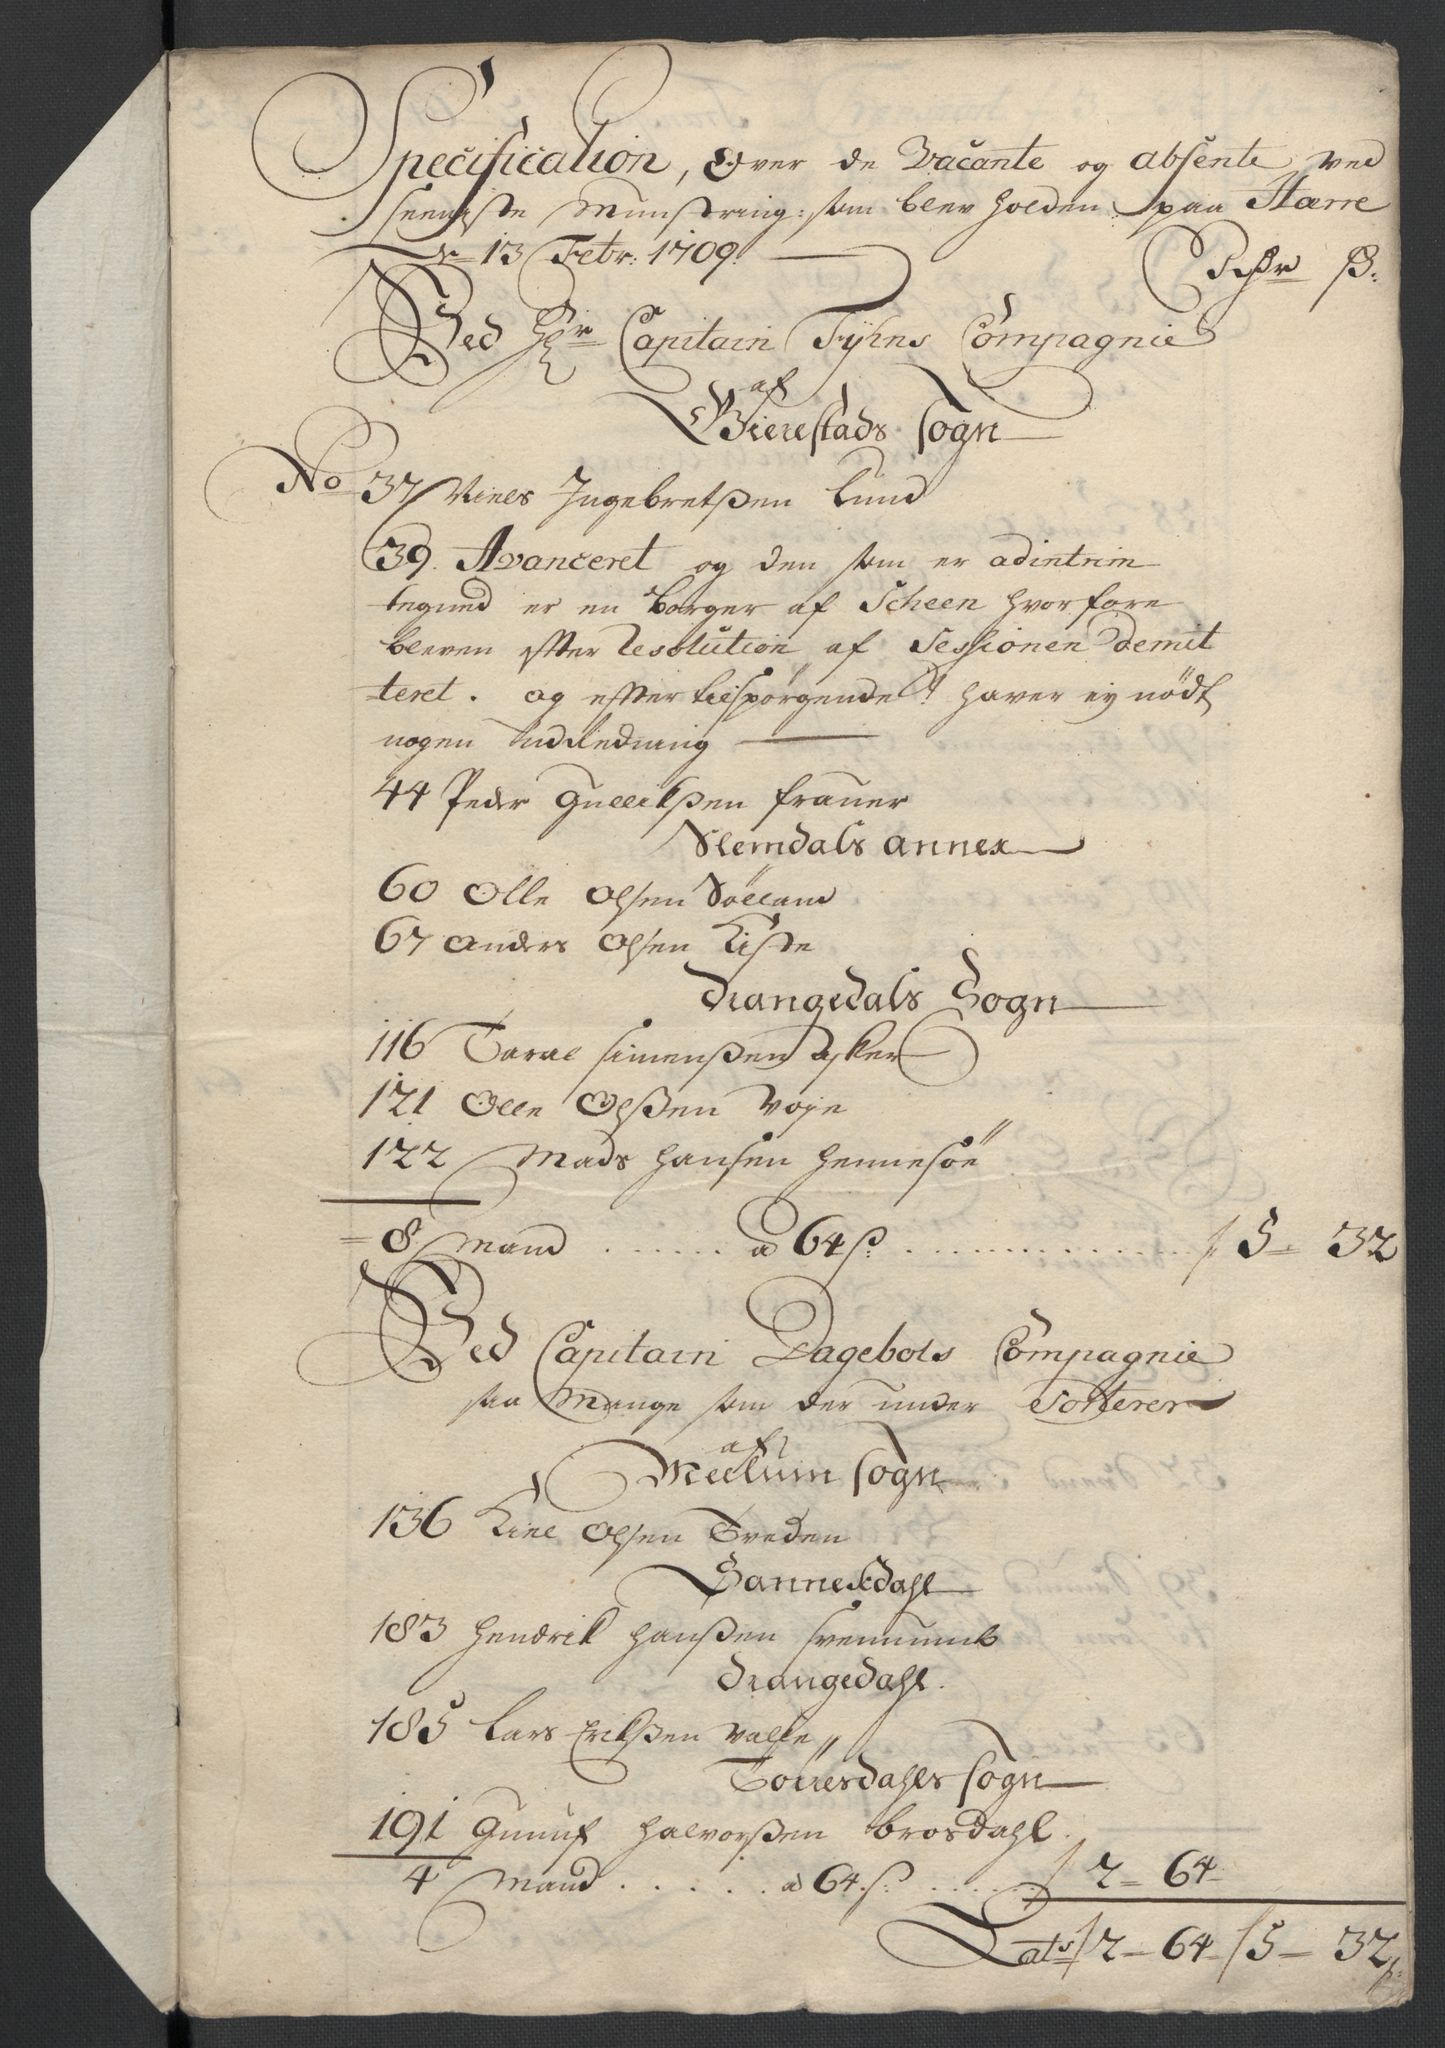 Specification, Over de Vacante og absente ved
seeniste Munstring: som blev holden paa Starre
d 13 Febr: 1709.
Rdr ß:
Ved Hr Capitain Tyhns Compagnie
af
Gierestads Sogn
No 37 Niels Ingebretßen Lund
39. Avanceret og den som er adintrim
tegned er en Borger af Scheen hvorfore
bleven efter Resolution af Sessionen demit
teret. og efter tilspørgende haver ey nödt
nogen Indledning
44 Peder Gullikßen Franer
Slemdals annex
60 Olle Olsen Sölland
67 Anders Olsen Kiste
Drangedals Sogn
116 Taral Simenßen Asker
121 Olle Olßen Voje
122 Mads Hansen Hennesöe
8 Mand a 64 ß: 5 - 32
Ved Capitain Dagebols Compagnie
saa Mange som der under Sorterer
af
Mellum Sogn
136 Kiel Olsen Tveden
Sannekdahl
183 Hendrik Hanßen
Drangedahl.
185 Lars Erikßen Valle
Törresdahls Sogn
191 Gunuf Halvorßen Brosdahl.
4 Mand a 64 ß: 2 - 64
Lats 2 - 64 5 - 32